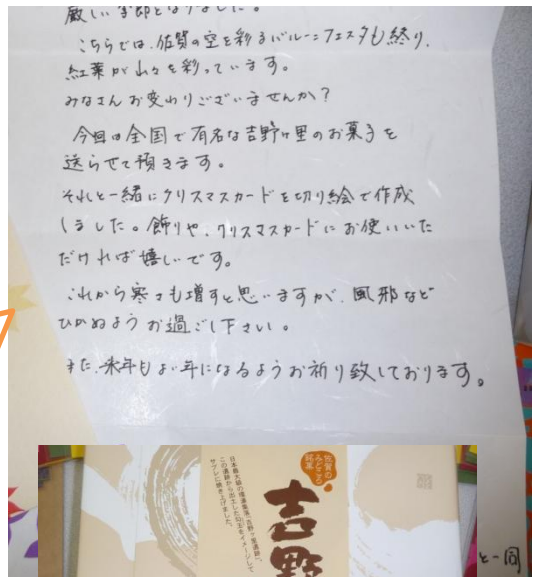 厳しい季節となりました。
こちらでは、佐賀の空を彩るバルーンフェスタも終り、
紅葉が山々を彩っています。
みなさんお変わりございませんか？
今回は全国で有名な吉野ヶ里のお菓子を
送らせて頂きます。
それと一緒にクリスマスカードを切り絵で作成
しました。飾りや、クリスマスカードにお使いいた
だければ嬉しいです。
これから寒さも増すと思いますが、風邪など
ひかぬようお過ごし下さい。
また、来年もよい年になるようお祈り致しております。
佐賀の
みどころ
銘菓
吉野
日本最大級の環濠集落、吉野ヶ里遺跡。
この遺跡から出土した勾玉をイメージして
サブレに焼き上げました。
と一同